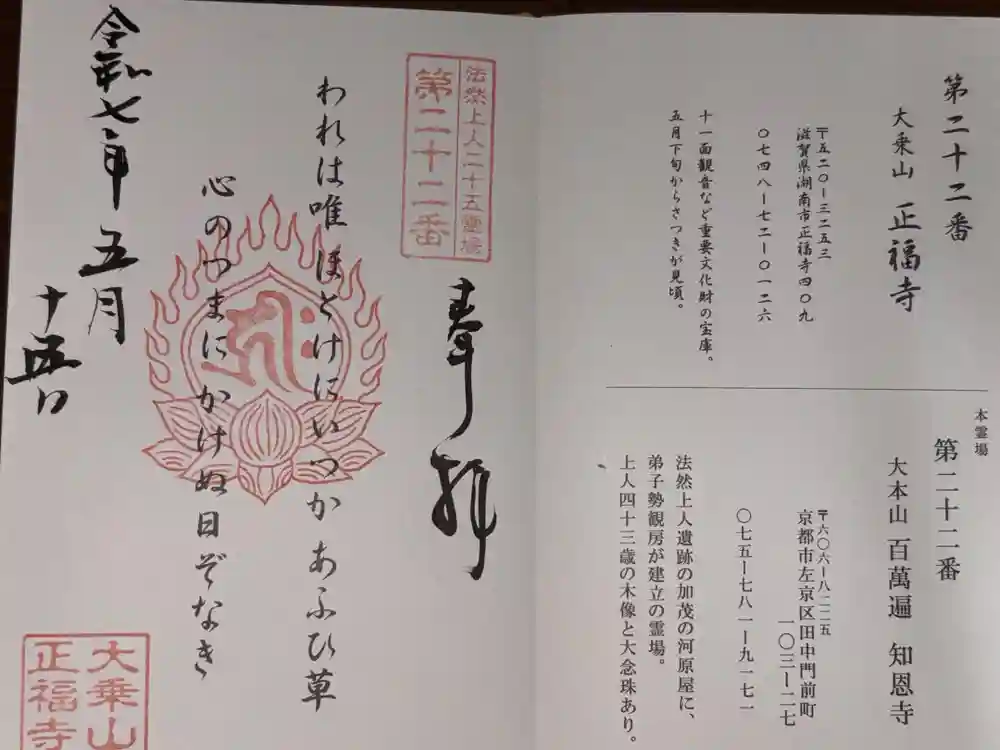 第二十二番
大乗山 正福寺
〒五二〇ー三二五三
滋賀県湖南市正福寺四〇九
〇七四八ー七二ー〇一二六
十一面観音など重要文化財の宝庫。
五月下旬からさつきが見頃。
本霊場
第二十二番
大本山 百萬遍 知恩寺
〒六〇六ー八二二五
京都市左京区田中門前町
一〇三ー二七
〇七五ー七八一ー九一七一
法然上人遺跡の加茂の河原屋に、
弟子勢観房が建立の霊場。
上人四十三歳の木像と大念珠あり。
法然上人二十五霊場
第二十二番
奉拝
われは唯ほとけにいつかあふひ草
心のつまにかけぬ日ぞなき
令和七年五月
十五日
大乗山
正福寺